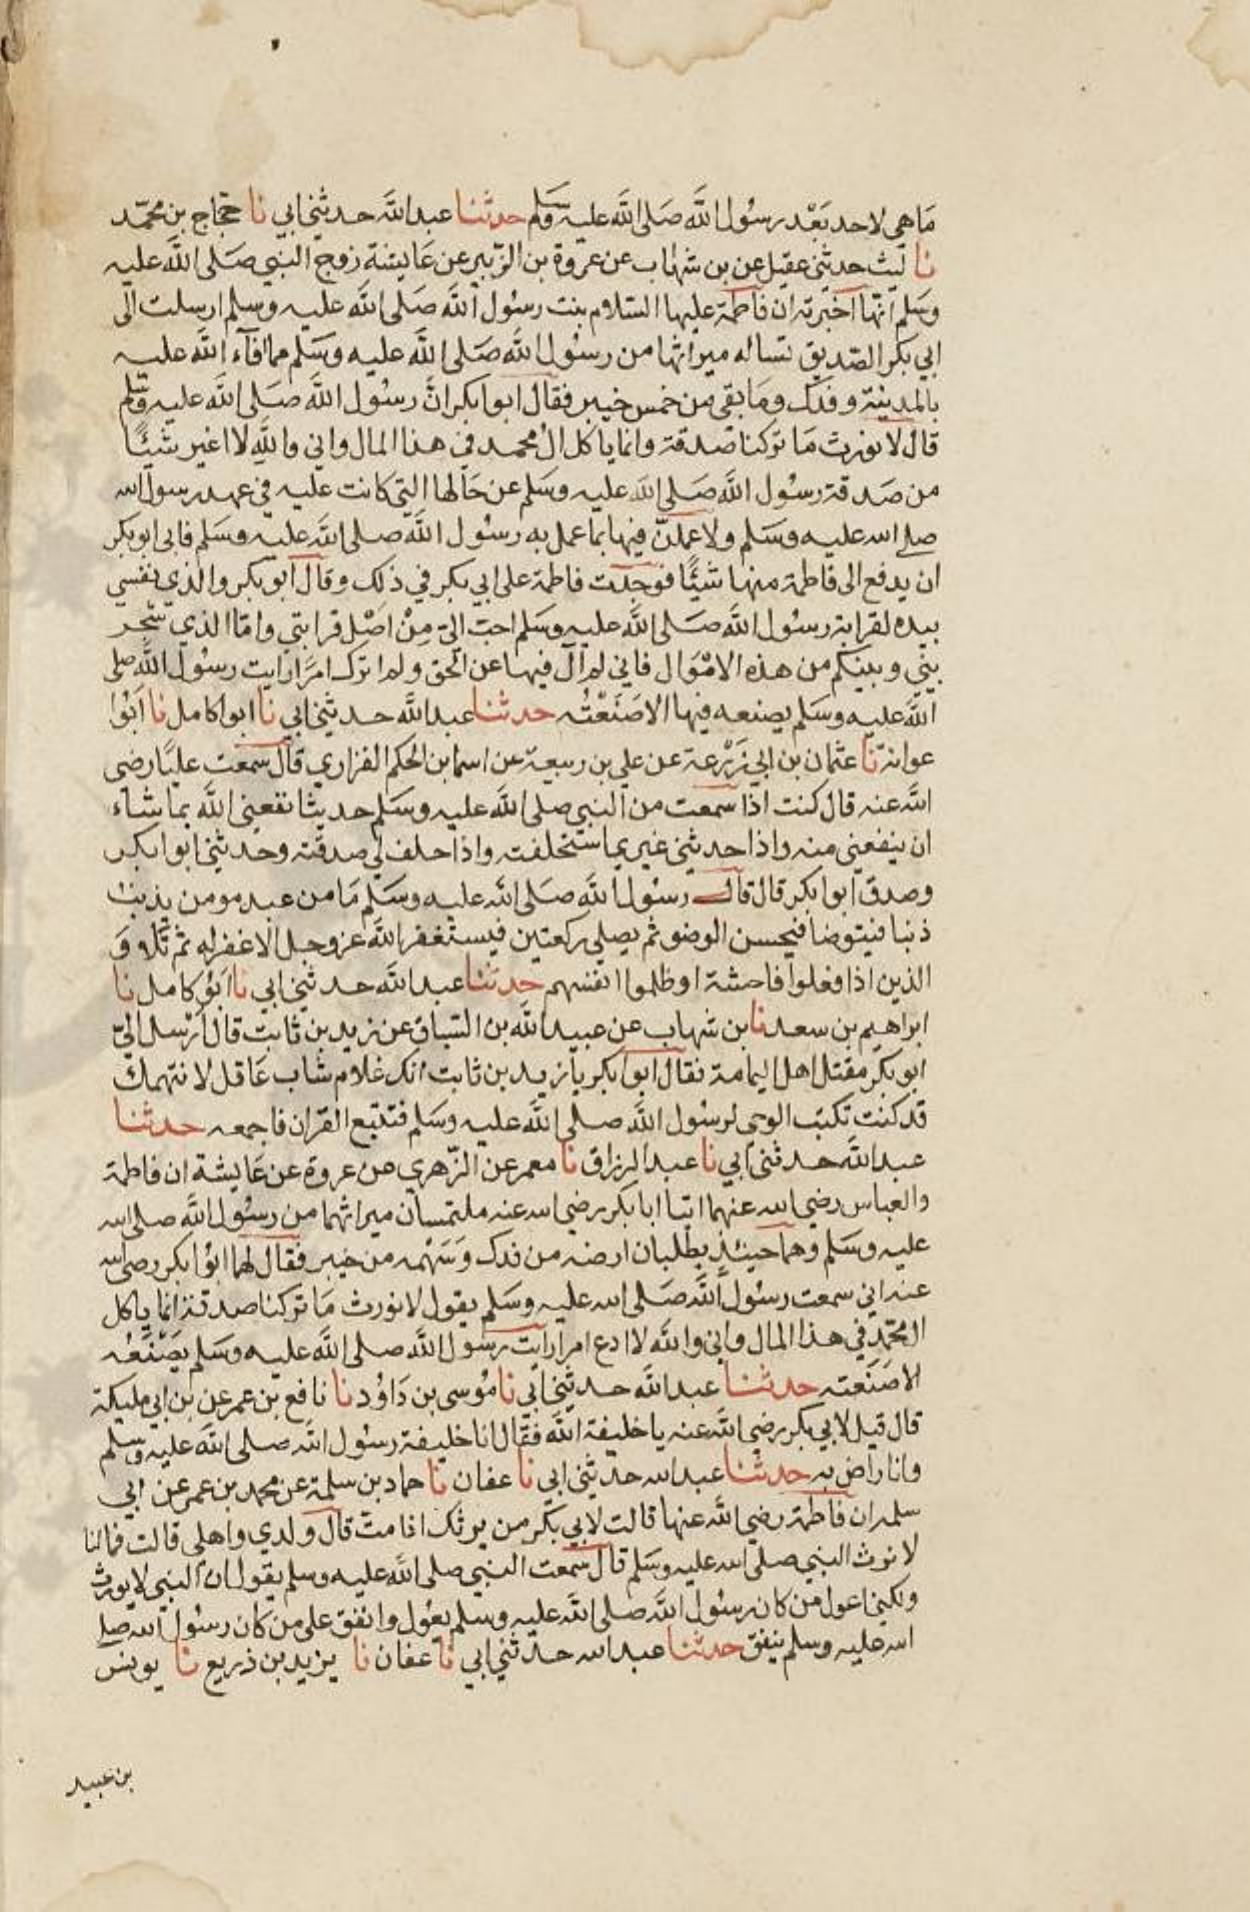 ما هي لاحد بعد رسول الله صلى الله عليه وسلم حدثنا عبد الله حدثني ابي نا حجاج بن محمد
نا ليث حدثني عقيل عن بن شهاب عن عروة بن الزبير عن عايشة زوج النبي صلى الله عليه
وسلم انها اخبرته ان فاطمة عليها السلام بنت رسول الله صلى الله عليه وسلم ارسلت الى
ابي بكر الصديق تساله ميراثها من رسول الله صلى الله عليه وسلم مما افآء الله عليه
بالمدينة وفدك وما بقى من خمس خيبر فقال ابوا بكر انّ رسول الله صلى الله عليه وسلم
قال لا نورث ما تركنا صدقة وانما ياكل ال محمد في هذا المال واني والله لا اغير شيئًا
من صدقة رسول الله صلى الله عليه وسلم عن حالها التي كانت عليه في عهد رسول الله
صلى الله عليه وسلم ولاعملنّ فيها بما عمل به رسول الله صلى الله عليه وسلم فابى ابو بكر
ان يدفع الى فاطمة منها شيئًا فوجدت فاطمة على ابي بكر في ذلك وقال ابو بكر والذي نفسي
بيده لقرابة رسول الله صلى الله عليه وسلم احبّ اليّ مِنْ اصْل قرابتي وامّا الذي شجر
بيني وبينكم من هذه الامْوَال فاني لم آل فيها عن الحق ولم اترك امرًا رايت رسول الله صلى
الله عليه وسلم يصنعه فيها الا صَنَعْتُه حدثنا عبد الله حدثني ابي نا ابوا كامل نا ابُوا
عوانة نا عثمان بن ابي زرعة عن علي بن ربيعة عن اسما بن الحكم الفزاري قال سمعت عليًا رضى
الله عنه قال كنت اذا سمعت من النبي صلى الله عليه وسلم حديثا نفعني الله بما شاء
ان ينفعني منه واذا حدثني غيري استحلفته واذا حلف لي صدقته وحدثني ابوا بكر
وصدق ابوا بكر قال قال رسول الله صلى الله عليه وسلم ما من عبد مومن يذنب
ذنبا فيتوضا فيحسن الوضو ثم يصلي ركعتين فيستغفر الله عز وجل الا غفر له ثم تلا و
الذين اذا فعلوا فاحشة او ظلموا انفسهم حدثنا عبد الله حدثني ابي نا ابو كامل نا
ابراهيم بن سعد نا بن شهاب عن عبيد الله بن السباق عن زيد بن ثابت قال ارسل اليّ
ابو بكر مقتل اهل اليمامة فقال ابوا بكر يا زيد بن ثابت انك غلام شاب عاقل لا نتهمك
قد كنت تكتب الوحي لرسول الله صلى الله عليه وسلم فتتبع القران فاجمعه حدثنا
عبد الله حدثني ابي نا عبد الرزاق نا معمر عن الزهري عن عروة عن عايشة ان فاطمة
والعباس رضي الله عنهما اتيا ابا بكر رضي الله عنه ملتمسان ميراثهما من رسول الله صلى الله
عليه وسلم وهما حينئذ يطلبان ارضه من فدك وسهمه من خيبر فقال لهما ابوا بكر رضي الله
عنه اني سمعت رسول الله صلى الله عليه وسلم يقول لا نورث ما تركنا صدقة انما ياكل
ال محمد في هذا المال واني والله لا ادع امرا رايت رسول الله صلى الله عليه وسلم يصْنَعُه
الا صنعته حدثنا عبد الله حدثني ابي نا مُوسى بن داوُد نا نافع بن عمر عن بن ابي مليكة
قال قيل لابي بكر رضي الله عنه يا خليفة الله فقال انا خليفة رسول الله صلى الله عليه وسلم
وانا راضٍ به حدثنا عبد الله حدثني ابي نا عفان نا حماد بن سلمة عن محمد بن عمر عن ابي
سلمه ان فاطمة رضي الله عنها قالت لابي بكر من يرثك اذا مت قال ولدي واهلي قالت فمالنا
لا نرث النبي صلى الله عليه وسلم قال سمعت النبي صلى الله عليه وسلم يقول ان النبي لا يورث
ولكني اعول من كان رسول الله صلى الله عليه وسلم يعول وانفق على من كان رسول الله صلى
الله عليه وسلم ينفق حدثنا عبد الله حدثني ابي نا عفان نا يزيد بن ذريع نا يونس
بن عبيد